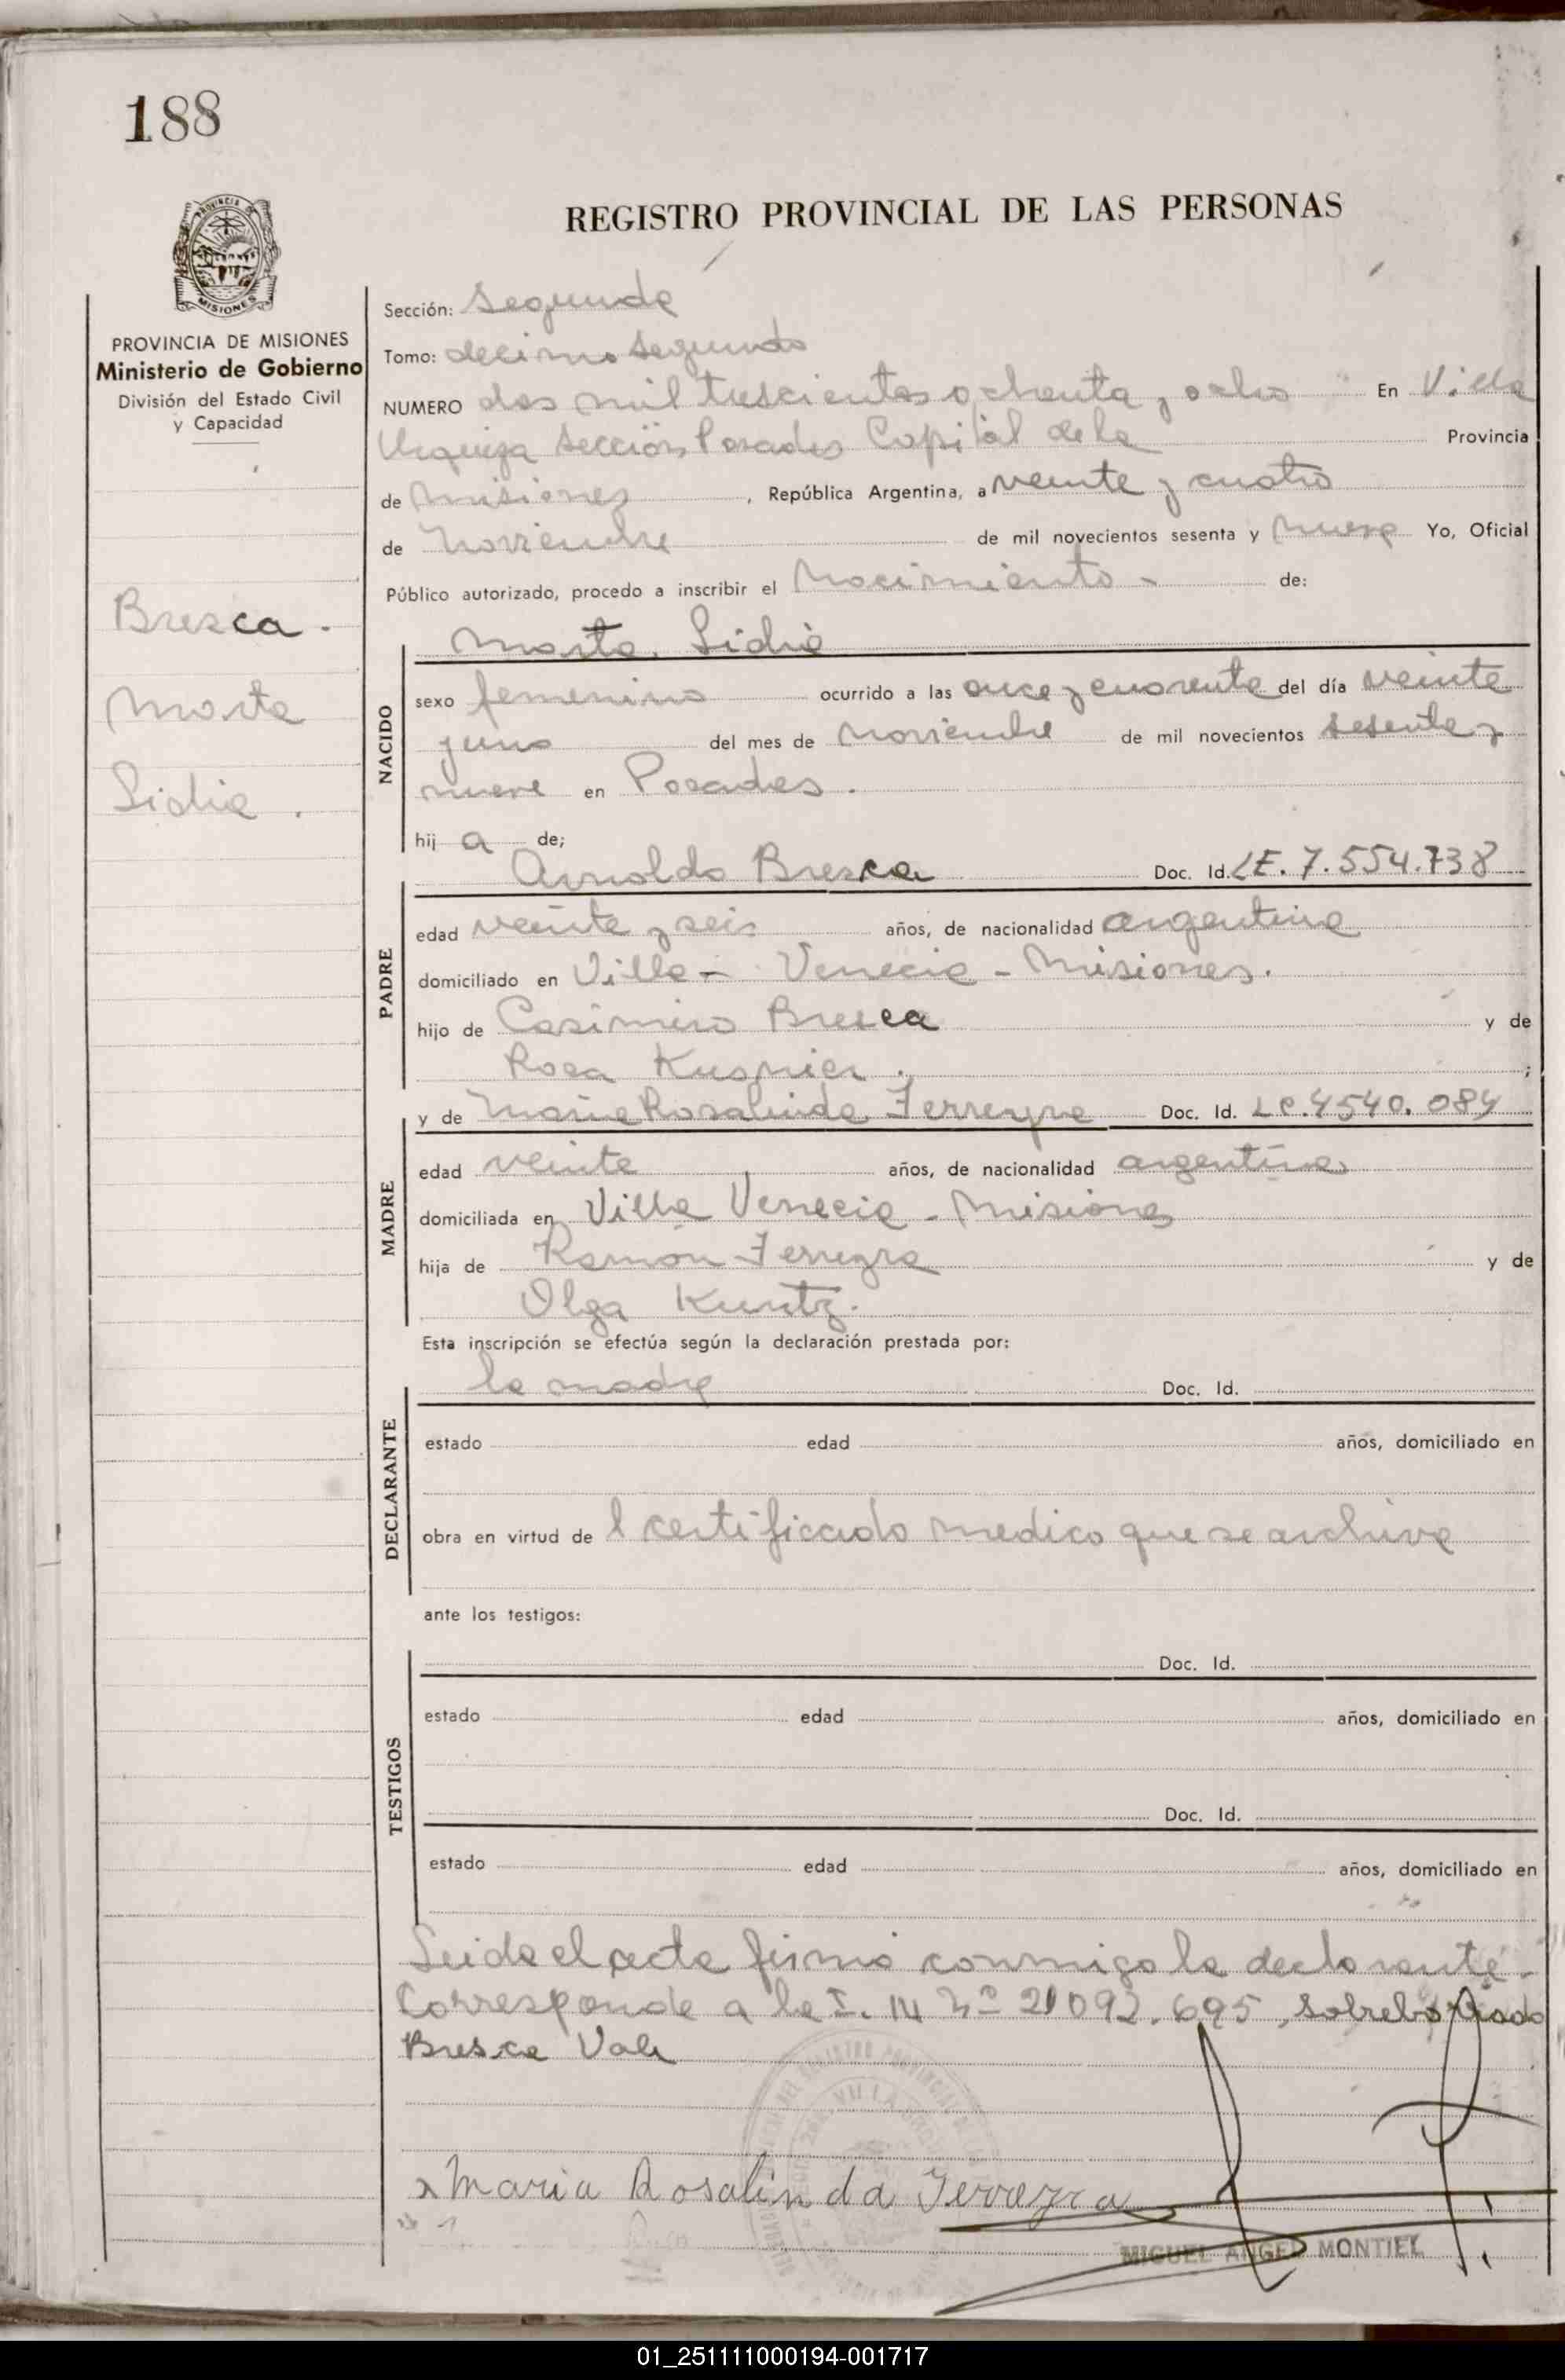 188
PROVINCIA DE
MISIONES
REGISTRO PROVINCIAL DE LAS PERSONAS
PROVINCIA DE MISIONES
Ministerio de Gobierno
División del Estado Civil
y Capacidad
Bresca.
Marta
Lidia.
Sección: Segunda
Tomo: decimo segundo
NUMERO dos mil trescientos ochenta y ocho En Villa
Urquiza Sección Posadas Capital de la Provincia
de Misiones, República Argentina, a veinte y cuatro
de Noviembre de mil novecientos sesenta y nueve Yo, Oficial
Público autorizado, procedo a inscribir el Nacimiento - de:
Marta Lidia
NACIDO
sexo femenino ocurrido a las once y cuarenta del día veinte
y uno del mes de Noviembre de mil novecientos sesenta y
nueve en Posadas.
hij a de;
Arnoldo Bresca Doc. Id. LE. 7.554.738
PADRE
edad veinte y seis años, de nacionalidad argentina
domiciliado en Villa - Venecia - Misiones.
hijo de Casimiro Bresca y de
Rosa Kusnier. ;
y de Maria Rosalinda Ferreyra Doc. Id. LC. 4540.084
MADRE
edad veinte años, de nacionalidad argentina
domiciliada en Villa Venecia - Misiones
hija de Ramón Ferreyra y de
Olga Kuntz.
Esta inscripción se efectúa según la declaración prestada por:
la madre Doc. Id.
DECLARANTE
estado edad años, domiciliado en
obra en virtud de l certificado medico que se archiva
ante los testigos:
Doc. Id.
TESTIGOS
estado edad años, domiciliado en
Doc. Id.
estado edad años, domiciliado en
Leida el acta firmó conmigo la declarante.
Corresponde a la I. 14 Nº 21092.695, sobreborrado
Bresca Vale
x Maria Rosalinda Ferreyra
MIGUEL ANGEL MONTIEL
01_251111000194-001717